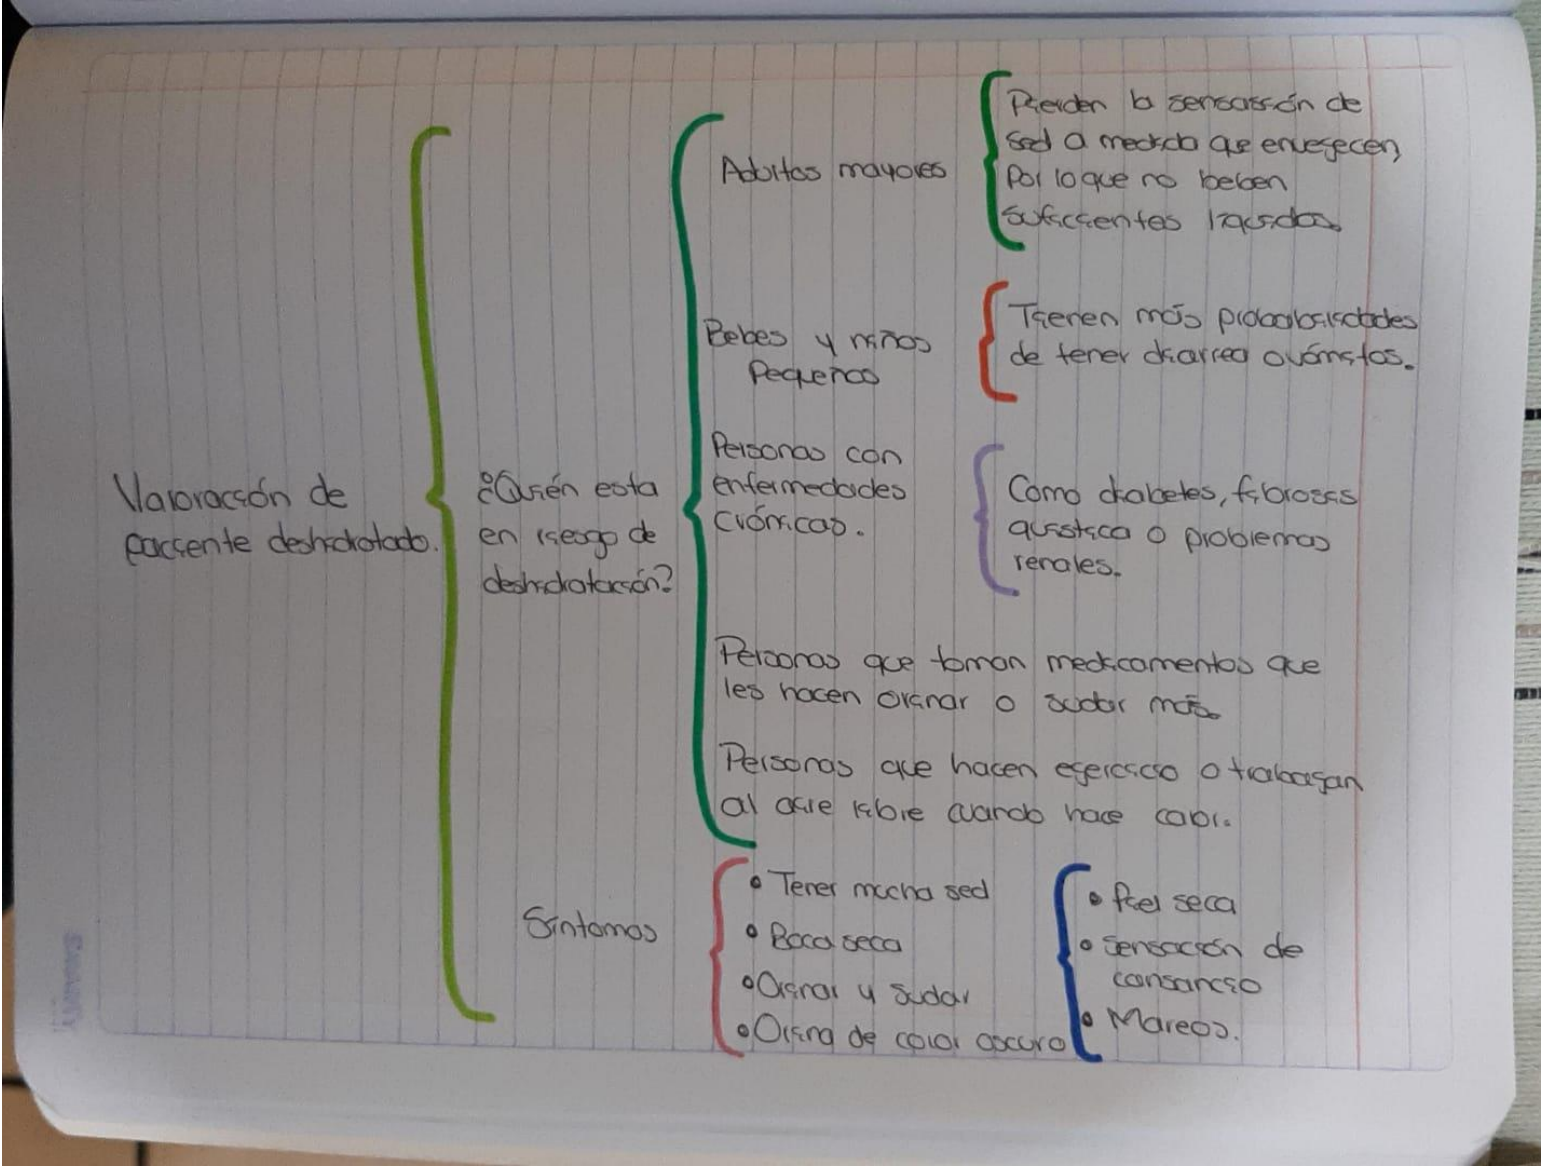 Valoración de
paciente deshidratado.
¿Quién esta
en riesgo de
deshidratación?
Adultos mayores
Pierden la sensassión de
sed a medida que envegecen,
Por lo que no beben
suficientes liquidos.
Bebes y niños
Pequeños
Tienen más probabilidades
de tener diarrea o vómitos.
Personas con
enfermedades
crónicas.
Como diabetes, fibrosis
quistica o problemas
renales.
Personas que toman medicamentos que
les hacen orinar o sudar más.
Personas que hacen egercicio o trabagan
al aire libre cuando hace calor.
Síntomas
• Tener mucha sed
• Boca seca
• Orinar y sudar
• Orina de color oscuro
• Piel seca
• Sensación de
cansancio
• Mareos.